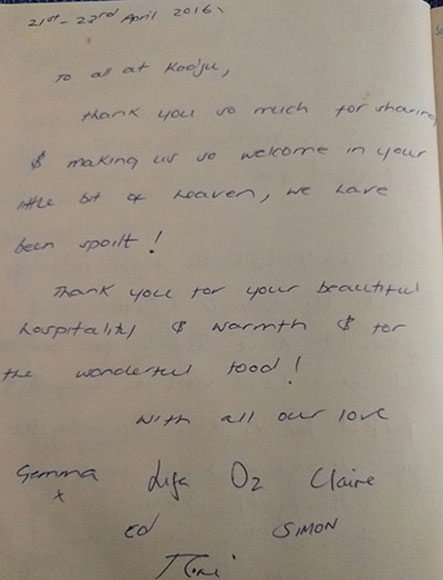 21st - 22rd April 2016.
To all at Kooju,
thank you so much for sharing
& making us so welcome in your
little bit of heaven, we have
been spoilt!
Thank you for your beautiful
hospitality & warmth & for
the wonderful food!
With all our love
Gemma Lisa Oz Claire
x
Ed SIMON